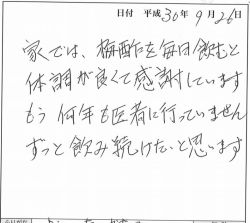 日付 平成30年9月26日
家では、梅酢を毎日飲むと
体調が良くて感謝しています
もう何年も医者に行っていません
ずっと飲み続けたいと思います